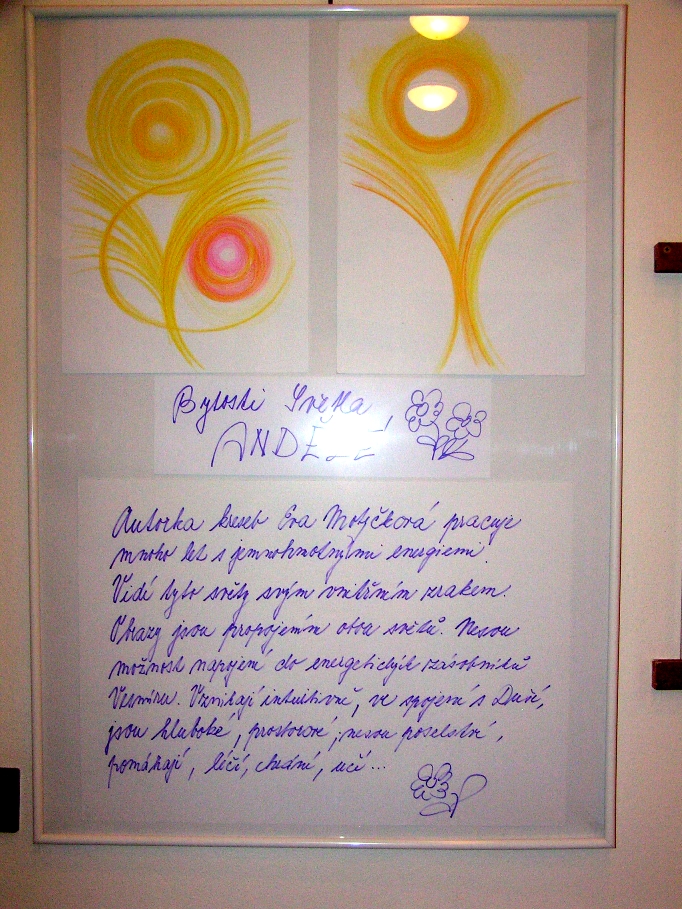 Bytosti Světla,
ANDĚLÉ
Autorka kreseb Eva Motyčková pracuje
mnoho let s jemnohmotnými energiemi.
Vidí tyto světy svým vnitřním zrakem.
Obrazy jsou propojením obou světů. Nesou
možnost napojení do energetických zásobníků
Vesmíru. Vznikají intuitivně, ve spojení s Duší,
jsou hluboké, prostorové, nesou poselství,
pomáhají, léčí, chrání, učí...